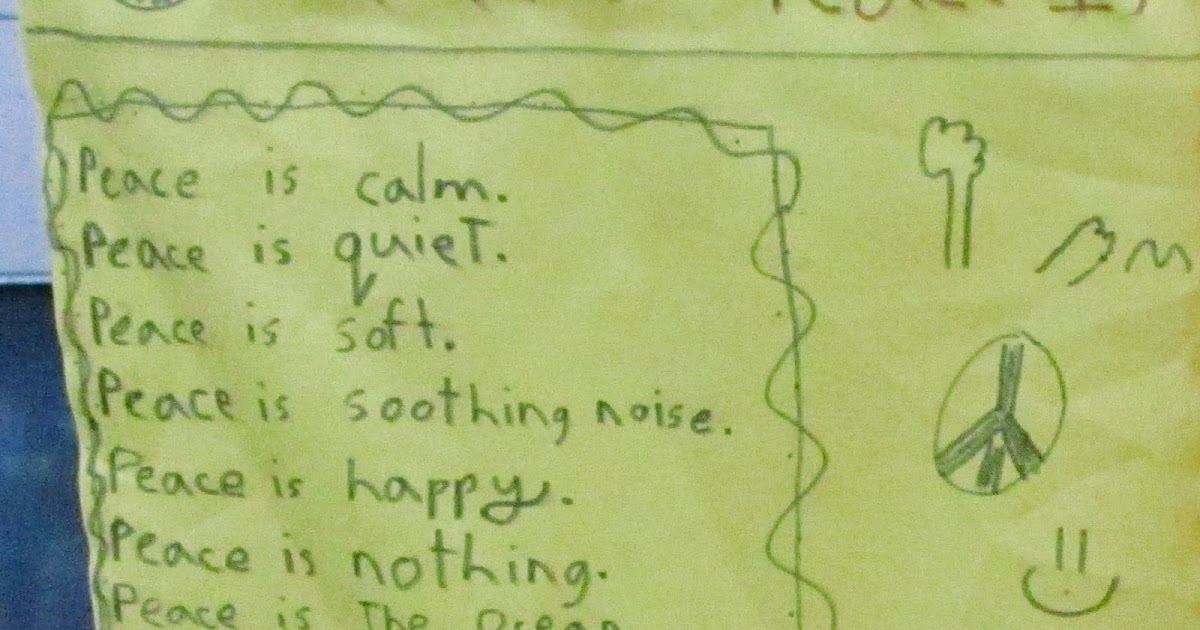 Peace is calm.
Peace is quieT.
Peace is soft.
Peace is soothing noise.
Peace is happy.
Peace is nothing.
Peace is The Ocean